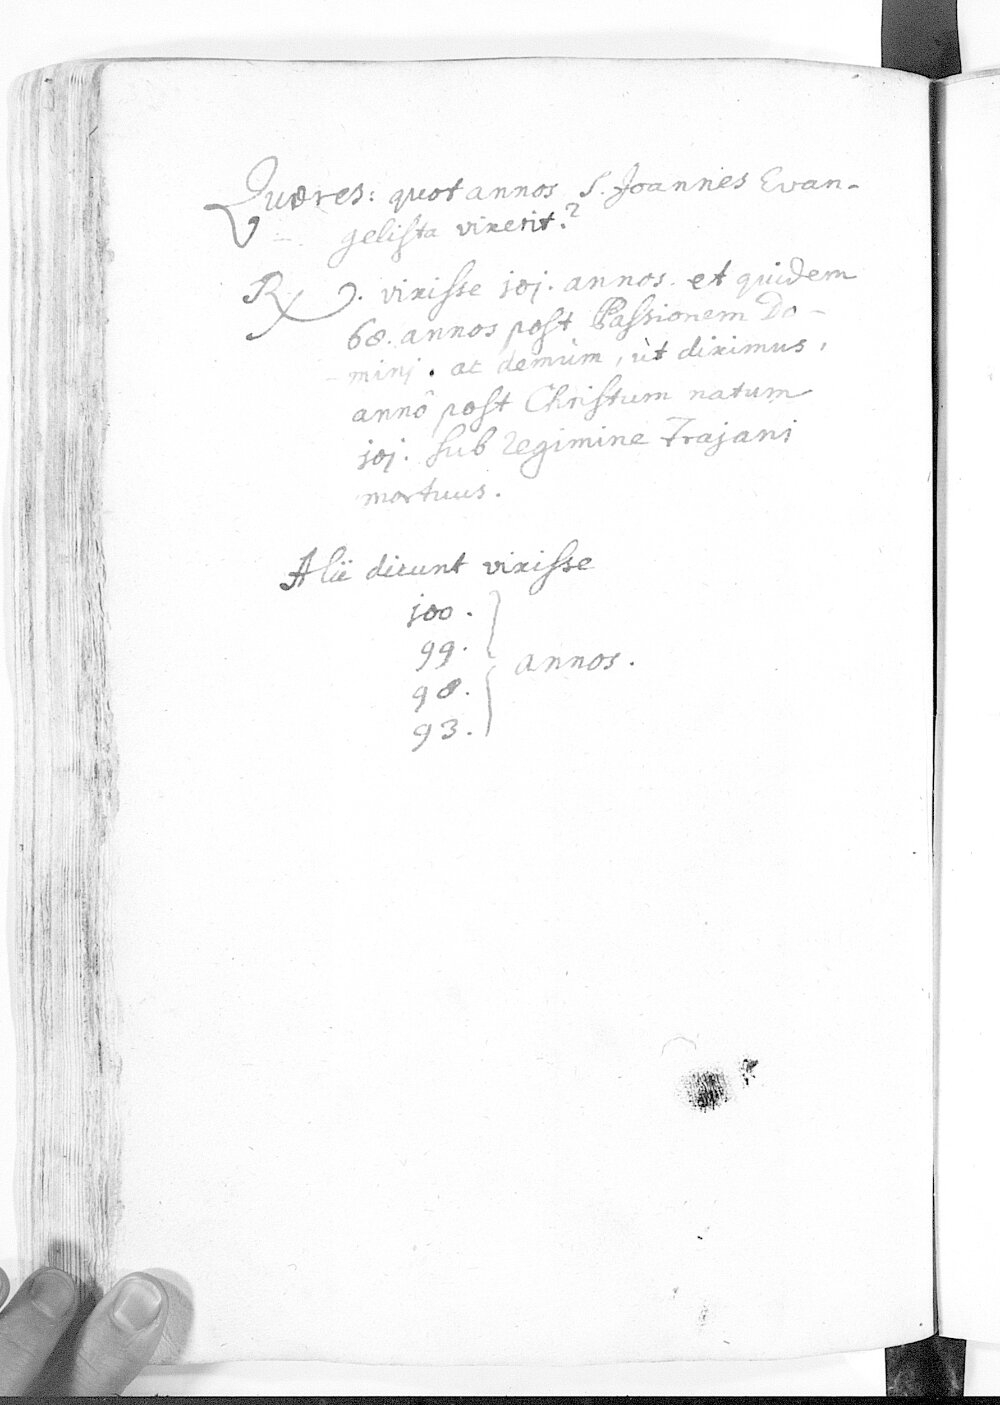 Quæres: quot annos S. Joannes Evan-
gelista vixerit?
R. vixisse 101. annos. et quidem
68. annos post Passionem Do-
minj. ac demùm, ùt diximus,
annô post Christum natum
101. sub regimine Trajani
mortuus.
Alii dicunt vixisse
100.
99.
98.
93.
annos.